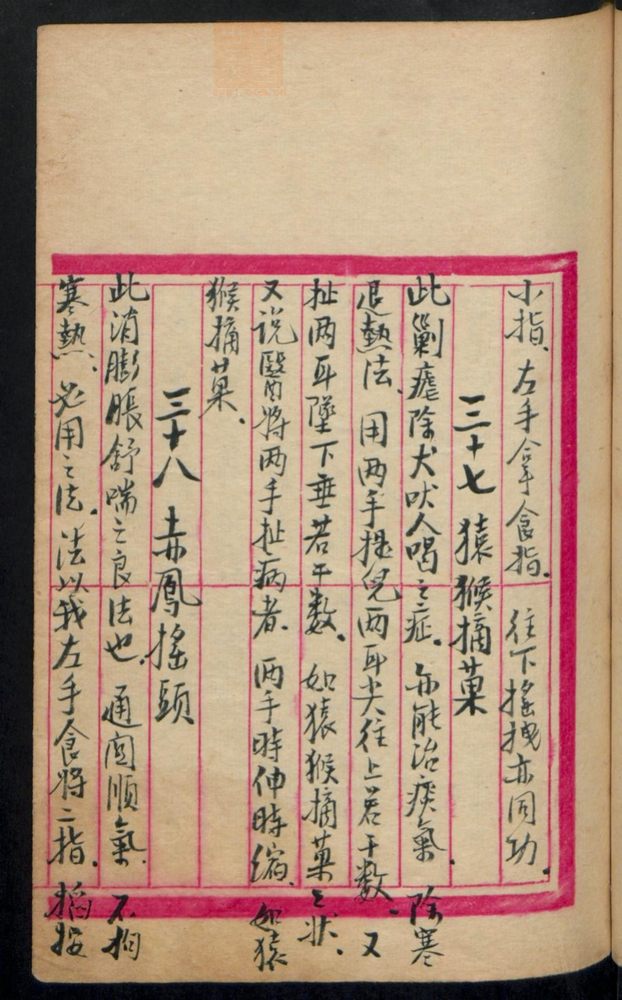 小指、左手拿食指。往下搖拽亦同功。
三十七 猿猴摘菓
此剿瘧除犬吠人喝之症。亦能治痰氣。除寒
退熱法、用两手提兒两耳尖往上若干数。又
扯两耳墜下垂若干数。如猿猴摘菓之状。
又说醫將两手扯病者、两手時伸時缩、如猿
猴摘菓、
三十八 赤鳳搖頭
此消膨脹舒喘之良法也、通関順氣、不拘
寒熱、必用之法。法以我左手食將二指、掐按